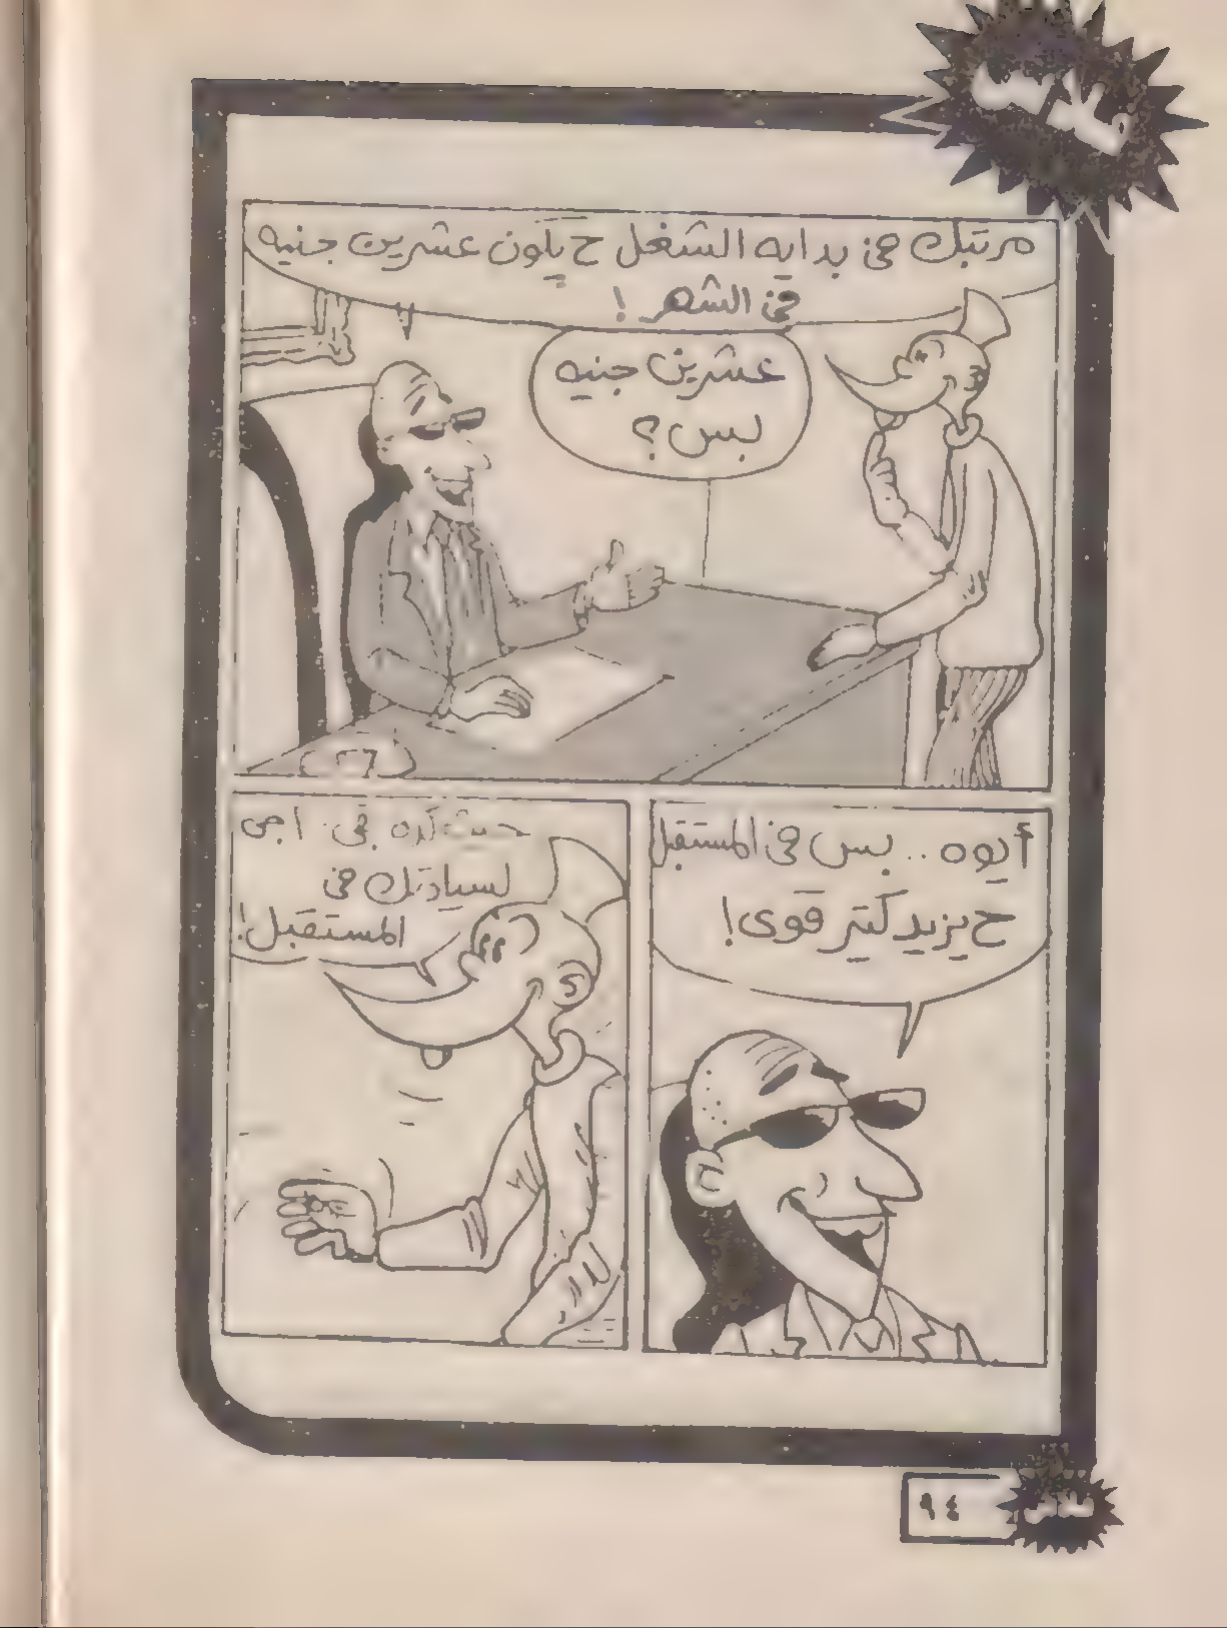 فلاش
مرتبك في بداية الشغل ح يكون عشرين جنيه
في الشهر !
عشرين جنيه
بس ؟
أيوه .. بس في المستقبل
ح يزيد كتير قوى !
كده أجى
لسيادتك في
المستقبل !
٩٤
فلاش